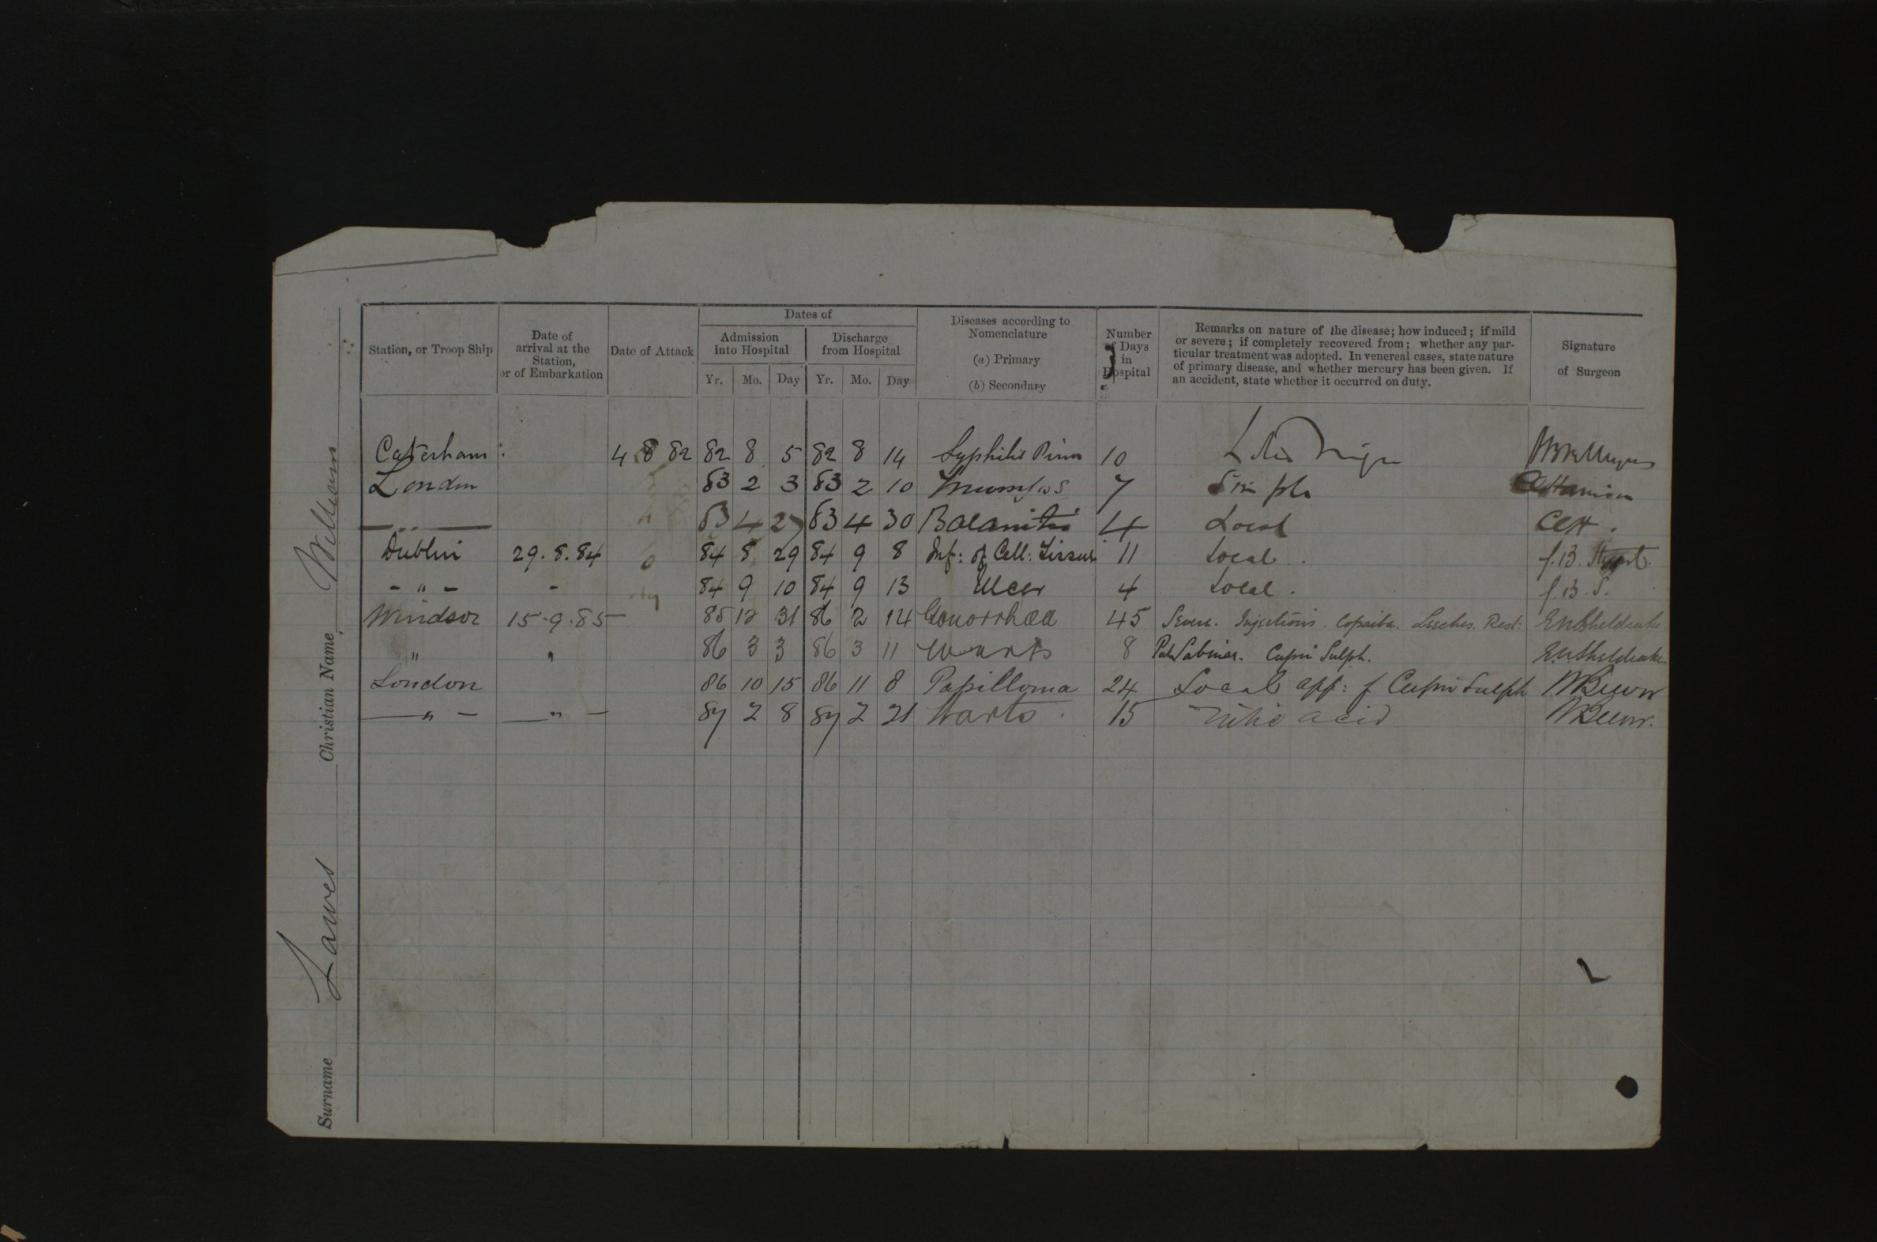 Surname Lawes Christian Name William
Station, or Troop Ship
Date of
arrival at the
Station,
or of Embarkation
Date of Attack
Dates of
Admission
into Hospital
Discharge
from Hospital
Yr. Mo. Day Yr. Mo. Day
Diseases according to
Nomenclature
(a) Primary
(b) Secondary
Number
of Days
in
Hospital
Remarks on nature of the disease; how induced; if mild
or severe; if completely recovered from; whether any par-
ticular treatment was adopted. In venereal cases, state nature
of primary disease, and whether mercury has been given. If
an accident, state whether it occurred on duty.
Signature
of Surgeon
Caterham: 4 8 82 82 8 5 82 8 14 Syphilis Prim 10
London 83 2 3 83 2 10 7 Simple
— " — 83 4 27 83 4 30 Balanitis 4 Local CH.
Dublin 29.8.84 84 8 29 84 9 8 Inf: of Cell: Tissue 11 Local. J.B.
- " - - 84 9 10 84 9 13 Ulcer 4 Local. J.B.S.
Windsor 15-9-85- 85 12 31 86 2 14 Gonorrhœa 45 Severe. Injections. Copaiba. Leeches. Rest.
" " 86 3 3 86 3 11 Warts 8 Cupri Sulph.
London 86 10 15 86 11 8 Papilloma 24 Local app: of Cupri Sulph
— " — — " — 87 2 8 87 2 21 Warts. 15 Nitric acid